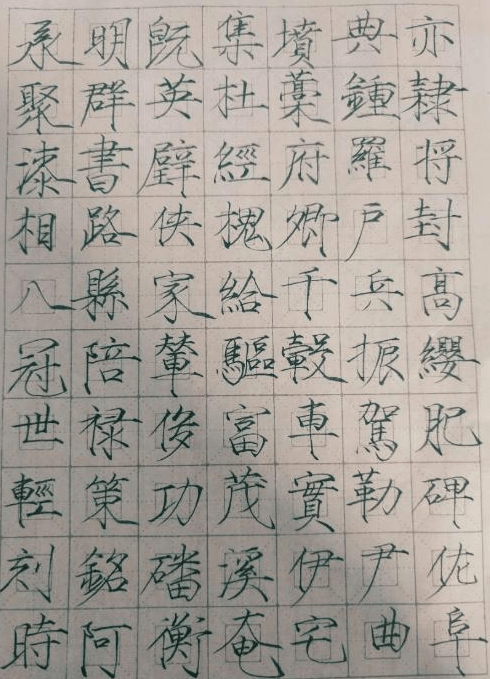 承明既集墳典亦
聚群英杜藁鍾隸
漆書壁經府羅将
相路侠槐卿戸封
八縣家給千兵髙
冠陪輦驅轂振纓
世禄侈富車駕肥
輕策功茂實勒碑
刻銘磻溪伊尹佐
時阿衡奄宅曲阜